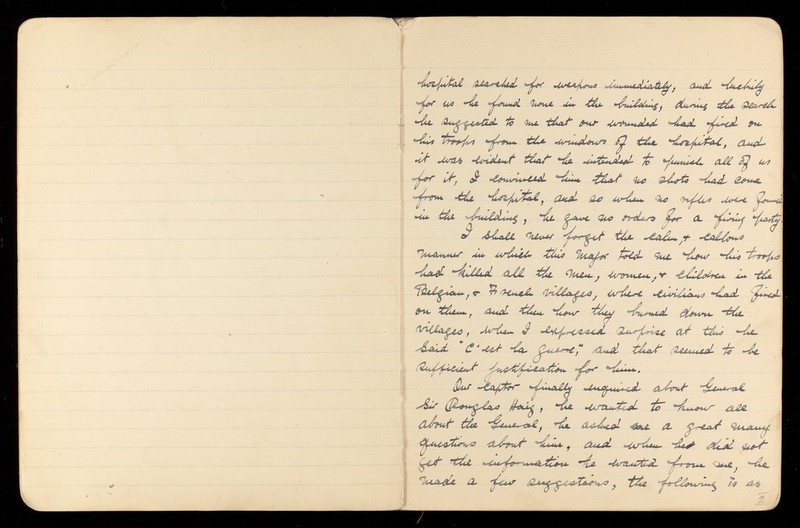 hospital searched for weapons immediately, and luckily
for us he found none in the building, during the search
he suggested to me that our wounded had fired on
his troops from the windows of the hospital, and
it was evident that he intended to punish all of us
for it, I convinced him that no shots had come
from the hospital, and so when no rifles were found
in the building, he gave no orders for a firing party
I shall never forget the calm, & callous
manner in which this Major told me how his troops
had killed all the men, women, & children in the
Belgian, & French villages, where civilians had fired
on them, and then how they burned down the
villages, when I expressed surprise at this he
said "C'est la guerre", and that seemed to be
sufficient justification for him.
Our captor finally enquired about General
Sir Douglas Haig, he wanted to know all
about the General, he asked me a great many
questions about him, and when he did not
get the information he wanted from me, he
made a few suggestions, the following is as
3